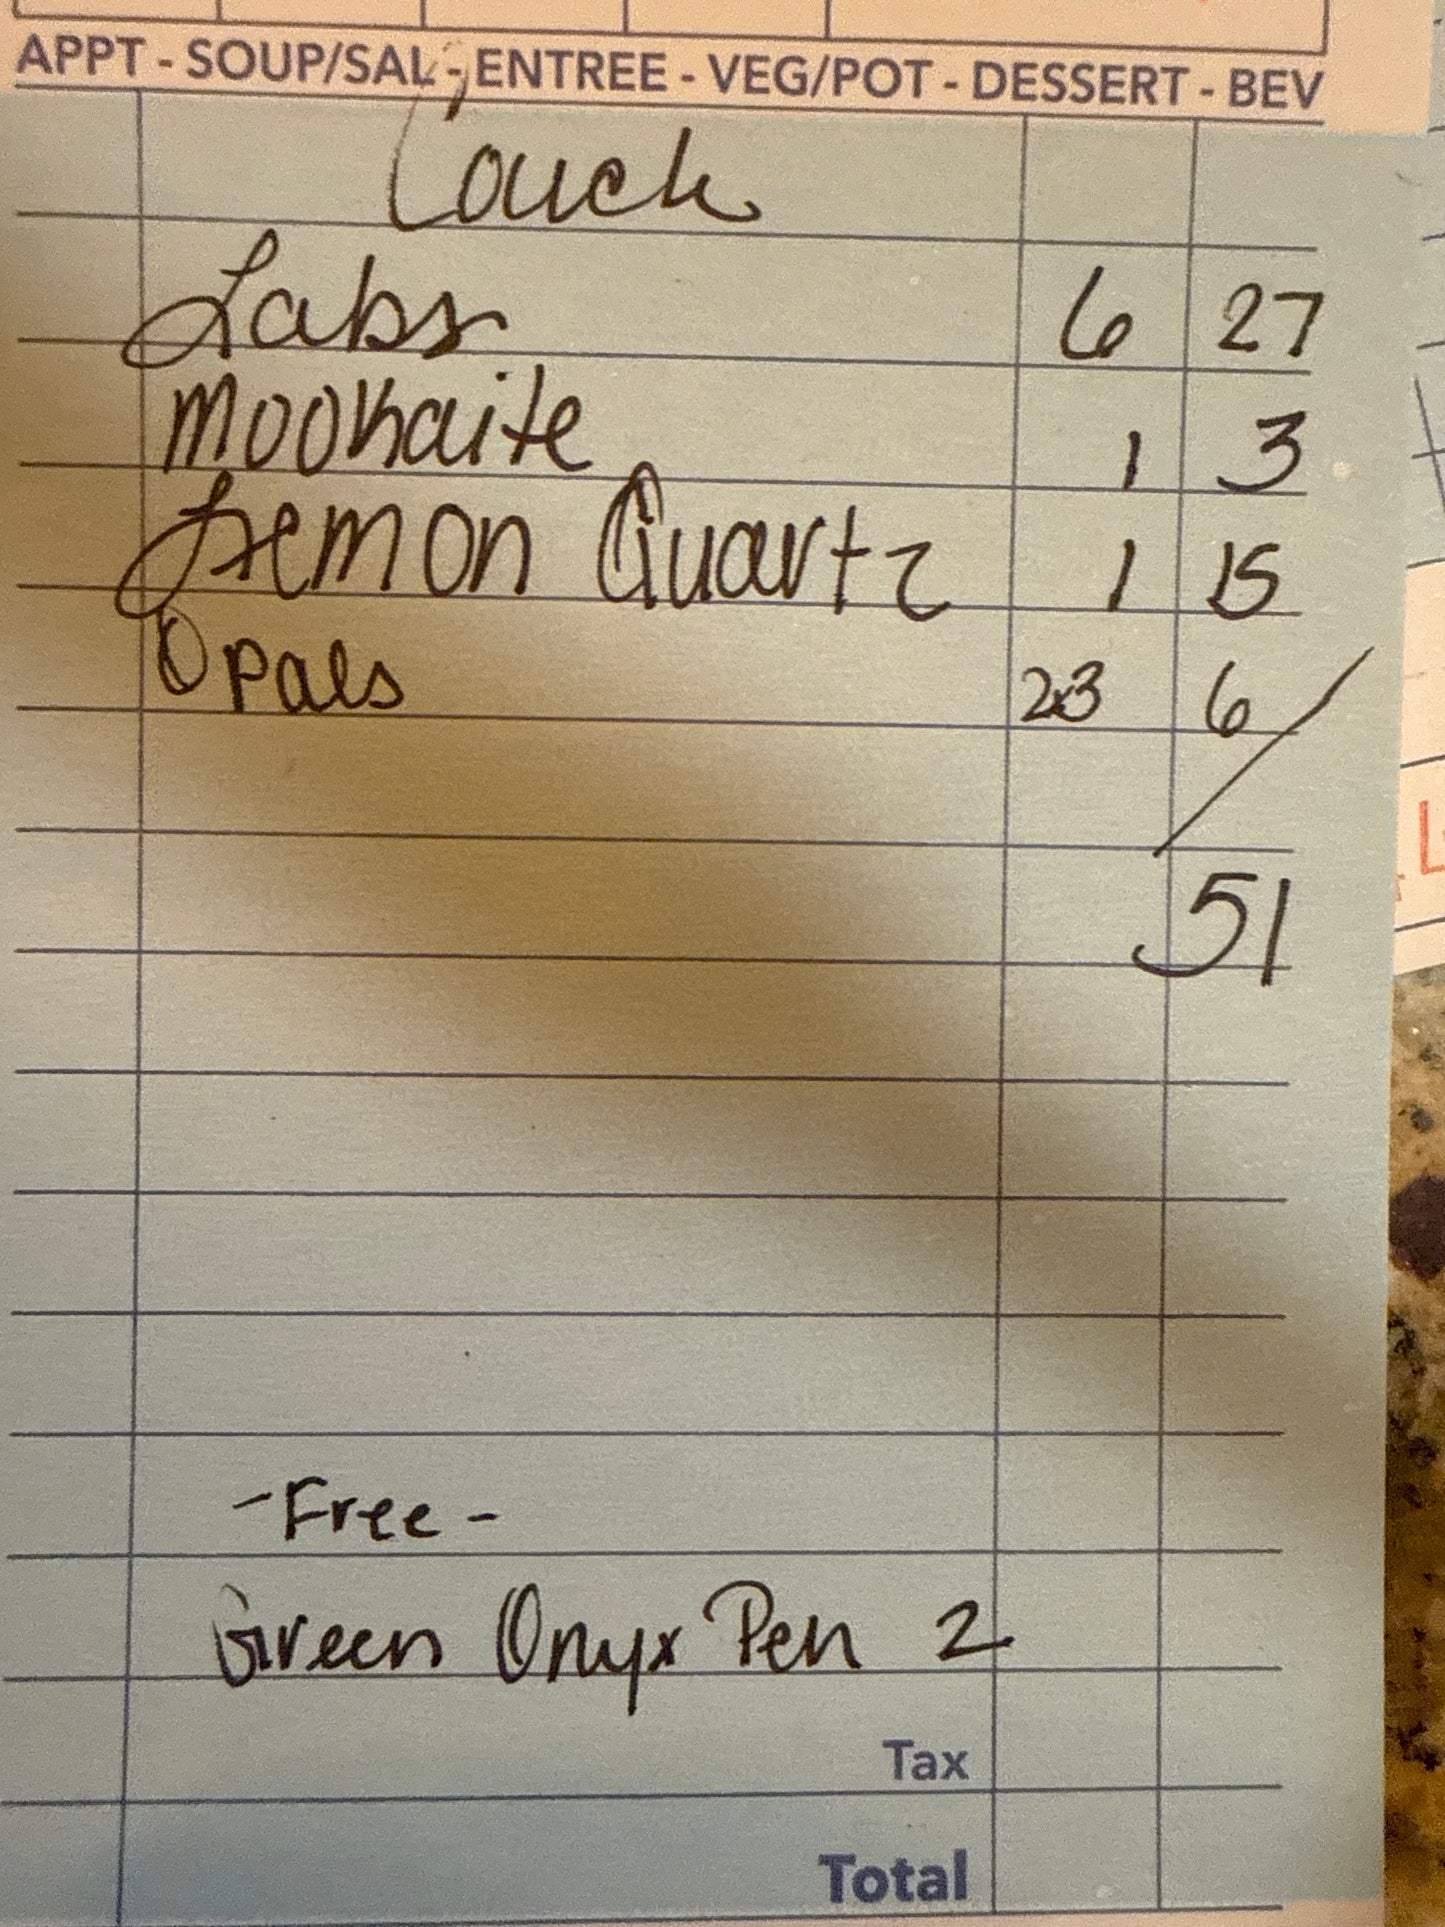 APPT - SOUP/SAL - ENTREE - VEG/POT - DESSERT - BEV
Couch
Labs 6 27
Mookaite 1 3
Lemon Quartz 1 15
Opals 2x3 6
51
- Free -
Green Onyx Pen 2
Tax
Total